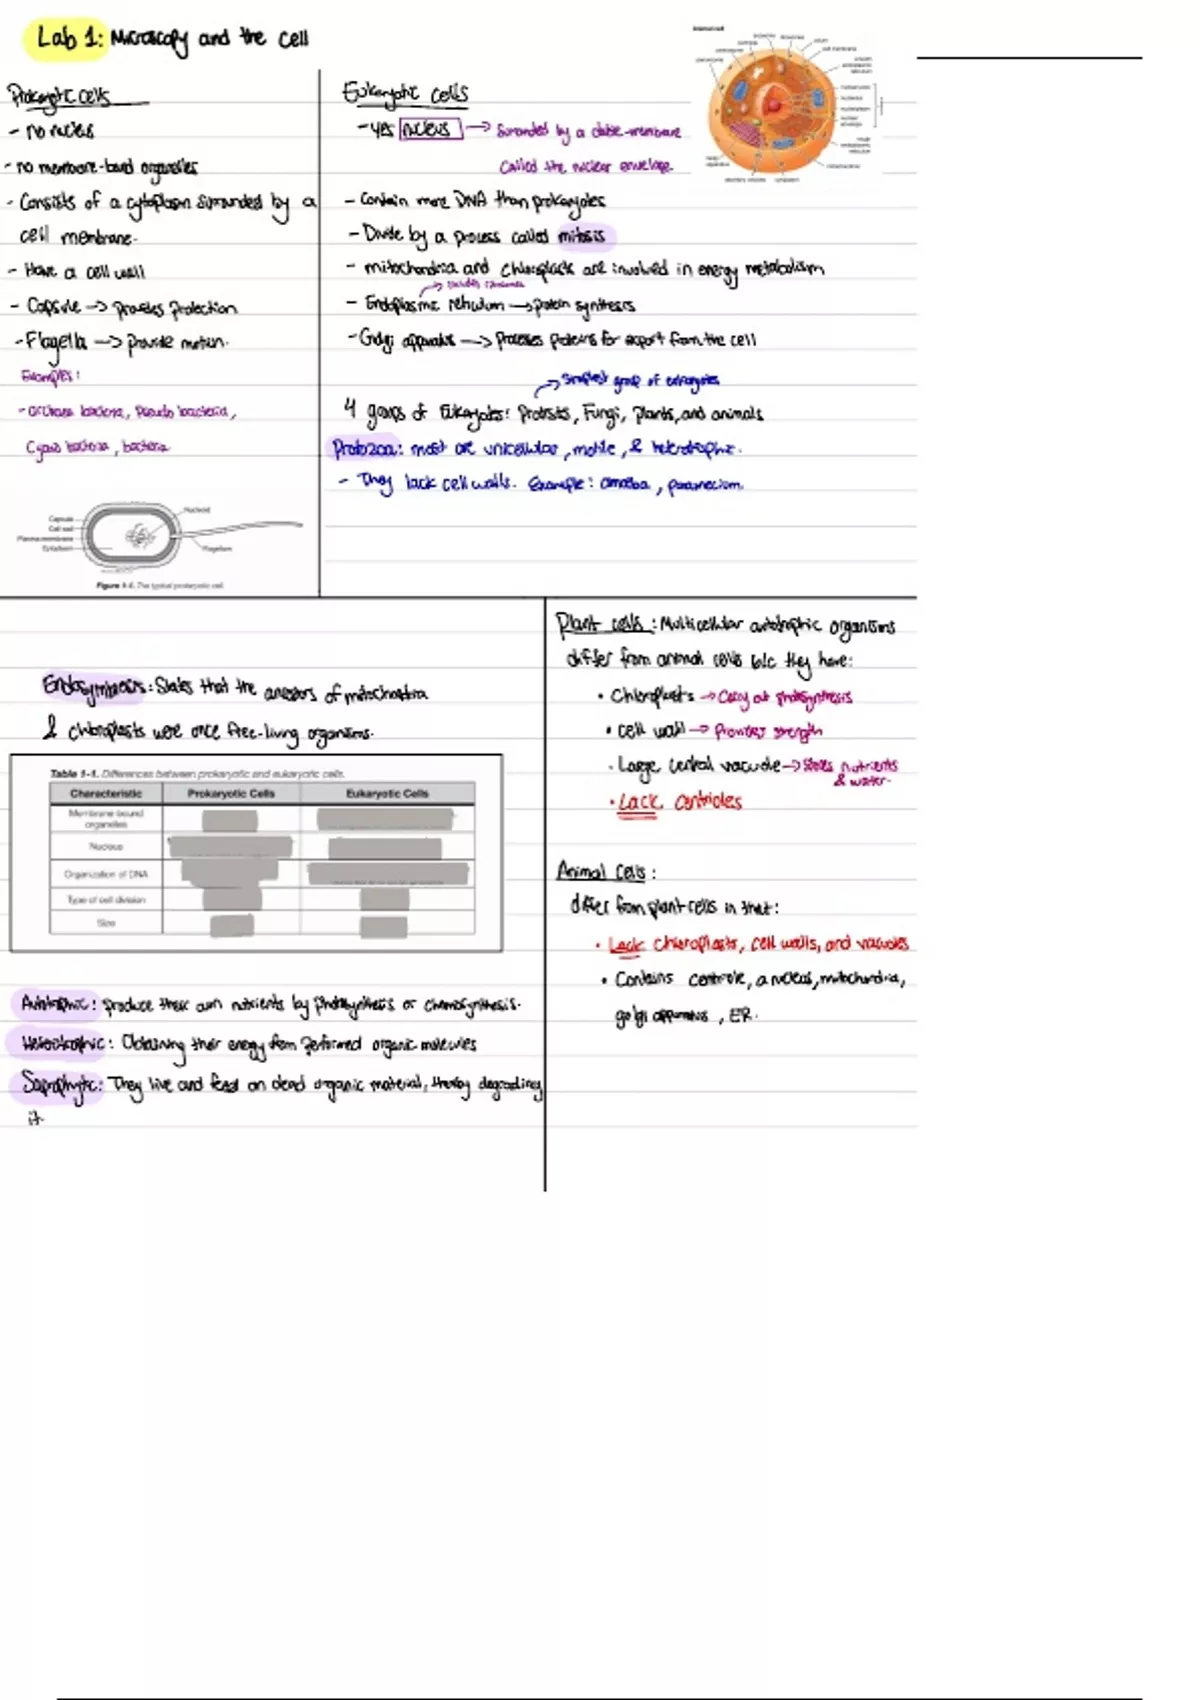 Lab 1: Microscopy and the cell
Prokaryotic cells
- no nucleus
- no membrane-bound organelles
- Consists of a cytoplasm surrounded by a
cell membrane.
- Have a cell wall
- Capsule -> provides protection
- Flagella -> provide motion.
Examples:
bacteria, bacteria,
bacteria, bacteria
Capsule
Cell wall
Plasma membrane
Cytoplasm
Nucleoid
Flagellum
Figure 1-1. The typical prokaryotic cell.
Eukaryotic cells
- yes nucleus -> Surrounded by a double-membrane
called the nuclear envelope.
- Contain more DNA than prokaryotes
- Divide by a process called mitosis
- mitochondria and chloroplasts are involved in energy metabolism
- Endoplasmic reticulum -> protein synthesis
- Golgi apparatus -> Processes proteins for export from the cell
-> simplest group of eukaryotes
4 groups of Eukaryotes: Protists, Fungi, Plants, and animals
Protozoa: most are unicellular, motile, & heterotrophic.
- They lack cell walls. Example: amoeba, paramecium.
Endosymbiosis: States that the ancestors of mitochondria
& chloroplasts were once free-living organisms.
Table 1-1. Differences between prokaryotic and eukaryotic cells.
Characteristic Prokaryotic Cells Eukaryotic Cells
Membrane-bound
organelles
Nucleus
Organization of DNA
Type of cell division
Size
Autotrophic: Produce their own nutrients by photosynthesis or chemosynthesis.
Heterotrophic: Obtaining their energy from performed organic molecules
Saprophytic: They live and feed on dead organic material, thereby degrading
it.
Plant cells: Multicellular autotrophic organisms
differ from animal cells b/c they have:
• Chloroplasts -> Carry out photosynthesis
• cell wall -> Provides strength
• Large central vacuole -> Stores nutrients
& water.
• Lack centrioles
Animal Cells:
differ from plant cells in that:
• Lack chloroplasts, cell walls, and vacuoles
• Contains centriole, a nucleus, mitochondria,
golgi apparatus, ER.